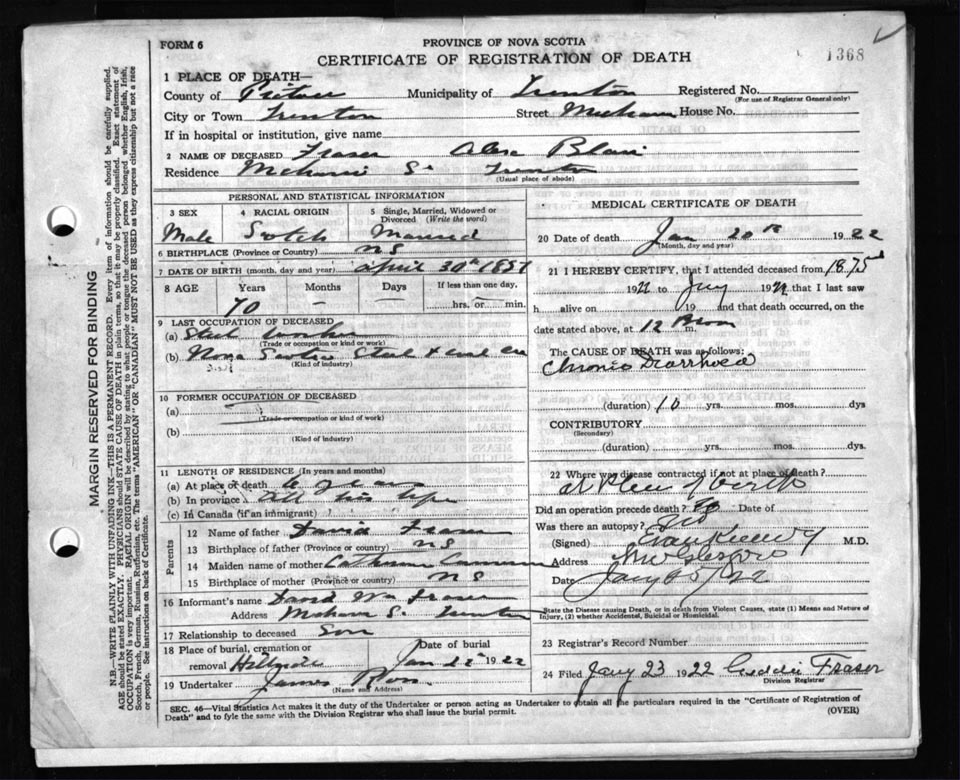 FORM 6
PROVINCE OF NOVA SCOTIA
CERTIFICATE OF REGISTRATION OF DEATH
1368
1 PLACE OF DEATH—
County of Pictou Municipality of Trenton Registered No.
(For use of Registrar General only)
City or Town Trenton Street House No.
If in hospital or institution, give name
2 NAME OF DECEASED Fraser Blair
Residence St Trenton
(Usual place of abode)
PERSONAL AND STATISTICAL INFORMATION
3 SEX 4 RACIAL ORIGIN 5 Single, Married, Widowed or Divorced (Write the word)
Male Scotch Married
6 BIRTHPLACE (Province or Country) NS
7 DATE OF BIRTH (month, day and year) April 30th 1851
8 AGE Years Months Days If less than one day,
70 — — hrs. or min.
9 LAST OCCUPATION OF DECEASED
(a) Steel worker
(Trade or occupation or kind or work)
(b) Nova Scotia Steel & Coal Co
(Kind of industry)
10 FORMER OCCUPATION OF DECEASED
(a)
(Trade or occupation or kind of work)
(b)
(Kind of industry)
11 LENGTH OF RESIDENCE (In years and months)
(a) At place of death years
(b) In province All his life
(c) In Canada (if an immigrant)
Parents
12 Name of father David Fraser
13 Birthplace of father (Province or country) NS
14 Maiden name of mother Catherine
15 Birthplace of mother (Province or country) NS
16 Informant's name David Wm Fraser
Address St Trenton
17 Relationship to deceased Son
18 Place of burial, cremation or removal Hillside Date of burial Jan 22 1922
19 Undertaker James Ross
(Name and Address)
MEDICAL CERTIFICATE OF DEATH
20 Date of death Jan 20th 1922
(Month, day and year)
21 I HEREBY CERTIFY, that I attended deceased from 1875
19 to Jany 19 that I last saw
h alive on 19 and that death occurred, on the
date stated above, at 12 m.
The CAUSE OF DEATH was as follows:
Chronic Diarrhoea
(duration) 10 yrs. mos. dys
CONTRIBUTORY
(Secondary)
(duration) yrs. mos. dys
22 Where was disease contracted if not at place of death?
At place of death
Did an operation precede death? No Date of
Was there an autopsy? No
(Signed) M.D.
Address New Glasgow
Date Jany
State the Disease causing Death, or in death from Violent Causes, state (1) Means and Nature of Injury, (2) whether Accidental, Suicidal or Homicidal.
23 Registrar's Record Number
24 Filed Jany 23 1922 Fraser
Division Registrar
SEC. 46—Vital Statistics Act makes it the duty of the Undertaker or person acting as Undertaker to obtain all the particulars required in the "Certificate of Registration of
Death" and to fyle the same with the Division Registrar who shall issue the burial permit.
(OVER)
MARGIN RESERVED FOR BINDING
N.B.—WRITE PLAINLY WITH UNFADING INK—THIS IS A PERMANENT RECORD. Every item of information should be carefully supplied.
AGE should be stated EXACTLY. PHYSICIANS should STATE CAUSE OF DEATH in plain terms, so that it may be properly classified. Exact statement of
OCCUPATION is very important. RACIAL ORIGIN will be described by stating to what people or tongue the deceased person belonged whether English, Irish,
Scotch, French, German, Russian, Ruthenian, etc. The terms "AMERICAN" OR "CANADIAN" MUST NOT BE USED as they express citizenship but not a race
or people. See instructions on back of Certificate.